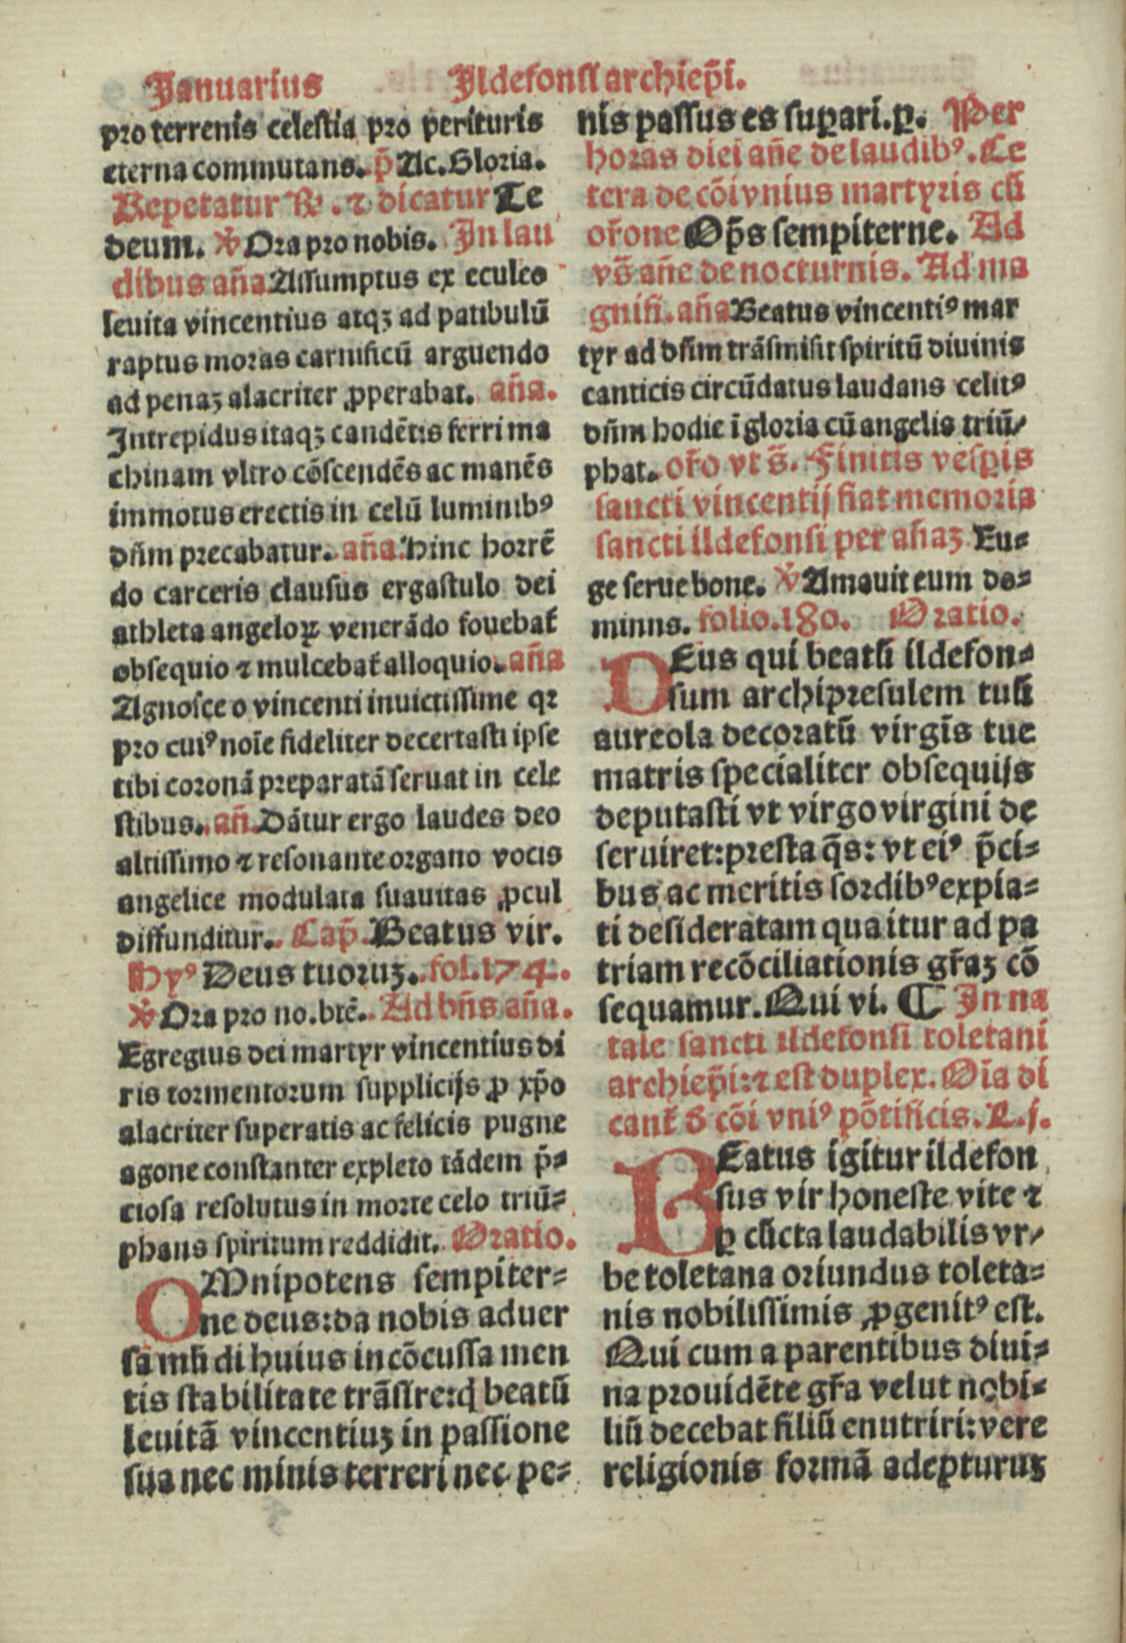 Januarius Ildefonsi archiep̄i.
pro terrenis celestia pro perituris
eterna commutans. p̄ Ac. Gloria.
Repetatur ℟. ⁊ dicatur Te
deum. ℣ Ora pro nobis. In lau
dibus aña Assumptus ex eculeo
leuita vincentius atqꝫ ad patibulū
raptus moras carnificū arguendo
ad penaꝫ alacriter ꝓperabat. aña.
Intrepidus itaqꝫ candētis ferri ma
chinam vltro cōscendēs ac manēs
immotus erectis in celū luminibꝰ
dñm precabatur. aña. Hinc horrē
do carceris clausus ergastulo dei
athleta angeloꝝ venerādo fouebat᷑
obsequio ⁊ mulcebat᷑ alloquio. aña
Agnosce o vincenti inuictissime qꝛ
pro cuiꝰ noīe fideliter decertasti ipse
tibi coronā preparatā seruat in cele
stibus. añ. Dātur ergo laudes deo
altissimo ⁊ resonante organo vocis
angelice modulata suauitas ꝓcul
diffunditur. Cap̄. Beatus vir.
Hyꝰ Deus tuoruꝫ. fol. 174.
℣ Ora pro no. btē. Ad bñs aña.
Egregius dei martyr vincentius di
ris tormentorum supplicijs ꝓ xp̄o
alacriter superatis ac felicis pugne
agone constanter expleto tādem p̄-
ciosa resolutus in morte celo triū-
phans spiritum reddidit. Oratio.
OMnipotens sempiter-
ne deus: da nobis aduer
sa mūdi huius incōcussa men
tis stabilitate trāsire: q̇ beatū
leuitā vincentiuꝫ in passione
sua nec minis terreri nec pe-
nis passus es suꝑari. ꝑ. Per
horas diei añe de laudibꝰ. Ce
tera de cōi vnius martyris cū
or̄one Op̄s sempiterne. Ad
vs̄ añe de nocturnis. Ad ma
gnifi. aña Beatus vincentiꝰ mar
tyr ad dñm trāsmisit spiritū diuinis
canticis circūdatus laudans celitꝰ
dñm hodie ī gloria cū angelis triū/
phat. or̄o vt s̄. Finitis vesꝑis
sancti vincentij fiat memoria
sancti ildefonsi per añaꝫ Eu-
ge serue bone. ℣ Amauit eum do-
minus. folio. 180. Oratio.
DEus qui beatū ildefon-
sum archipresulem tuū
aureola decoratū virgīs tue
matris specialiter obsequijs
deputasti vt virgo virgini de
seruiret: presta q̄s: vt eiꝰ p̄ci-
bus ac meritis sordibꝰ expia-
ti desideratam qua itur ad pa
triam recōciliationis gr̄aꝫ cō
sequamur. Qui vi. ¶ In na
tale sancti ildefonsi toletani
archiep̄i: ⁊ est duplex. Oīa di
cant᷑ d̄ cōi vniꝰ pōtificis. L. j.
BEatus igitur ildefon
sus vir honeste vite ⁊
ꝑ cūcta laudabilis vr/
be toletana oriundus toleta-
nis nobilissimis ꝓgenitꝰ est.
Qui cum a parentibus diui-
na prouidēte gr̄a velut nobi-
liū decebat filiū enutriri: vere
religionis formā adepturuꝫ